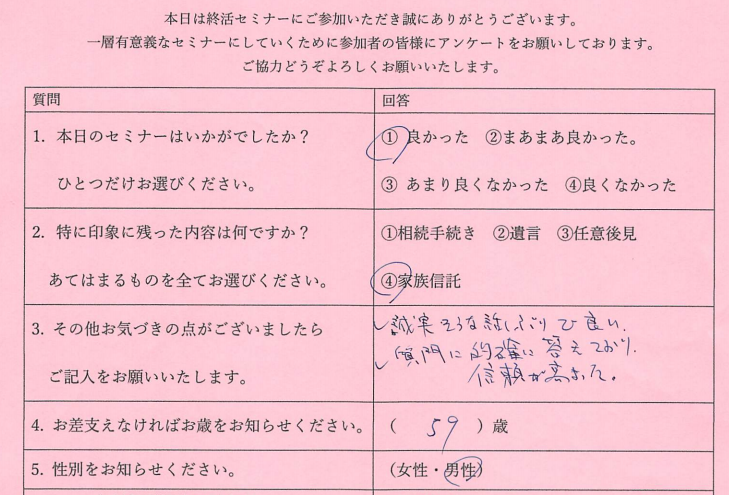 本日は終活セミナーにご参加いただき誠にありがとうございます。
一層有意義なセミナーにしていくために参加者の皆様にアンケートをお願いしております。
ご協力どうぞよろしくお願いいたします。
質問 回答
1. 本日のセミナーはいかがでしたか？ ① 良かった ②まあまあ良かった。
ひとつだけお選びください。 ③ あまり良くなかった ④良くなかった
2. 特に印象に残った内容は何ですか？ ①相続手続き ②遺言 ③任意後見
あてはまるものを全てお選びください。 ④家族信託
3. その他お気づきの点がございましたら
ご記入をお願いいたします。
✓誠実そうな話しぶりで良い、
✓質問に的確に答えており、
信頼が高まった。
4. お差支えなければお歳をお知らせください。 （ 59 ）歳
5. 性別をお知らせください。 （女性・男性）